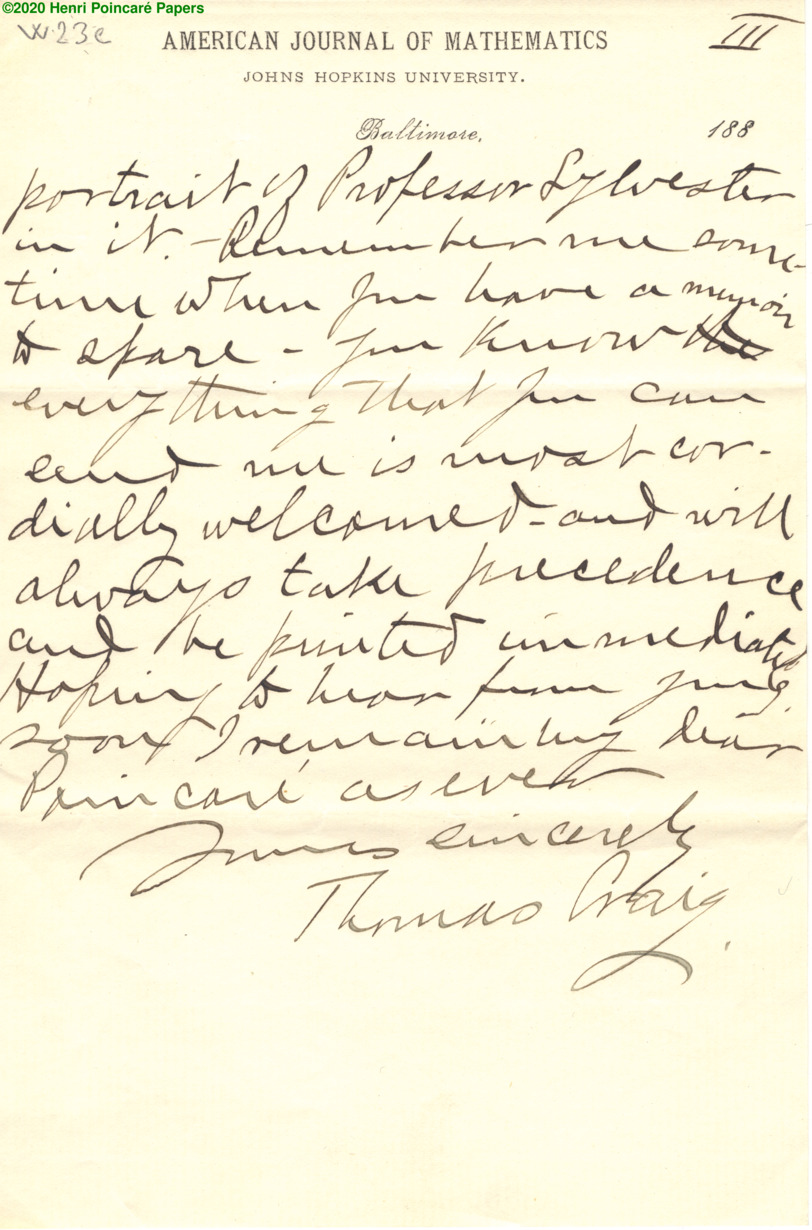 ©2020 Henri Poincaré Papers
W23c
III
AMERICAN JOURNAL OF MATHEMATICS
JOHNS HOPKINS UNIVERSITY.
Baltimore, 188
portrait of Professor Sylvester
in it. - Remember me some-
time when you have a memoir
to spare - you know the
everything that you can
send me is most cor-
dially welcomed - and will
always take precedence
and be printed immediately
Hoping to hear from you
soon I remain my dear
Poincaré as ever
Yours sincerely
Thomas Craig.